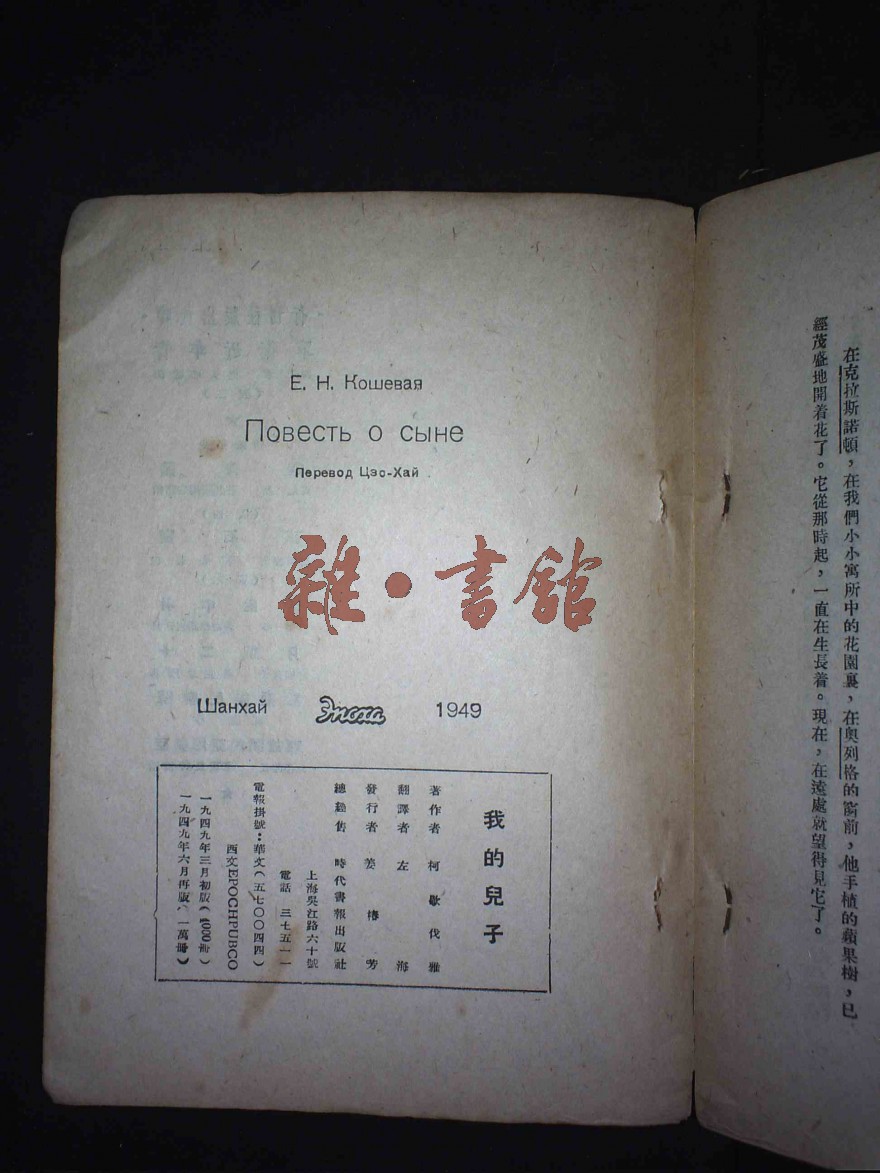 Е. Н. Кошевая
Повесть о сыне
Перевод Цзо-Хай
雜·書館
Шанхай Эпоха 1949
我的兒子
著作者 柯歇伐雅
翻譯者 左海
發行者 姜椿芳
總經售 時代書報出版社
上海吳江路六十號
電話 三七五一一
電報掛號：華文(五七〇〇四四)
西文EPOCHPUBCO
一九四九年三月初版(4000冊)
一九四九年六月再版(一萬冊)
在克拉斯諾頓，在我們小小寓所中的花園裏，在奧列格的窗前，他手植的蘋果樹，已
經茂盛地開着花了。它從那時起，一直在生長着。現在，在遠處就望得見它了。